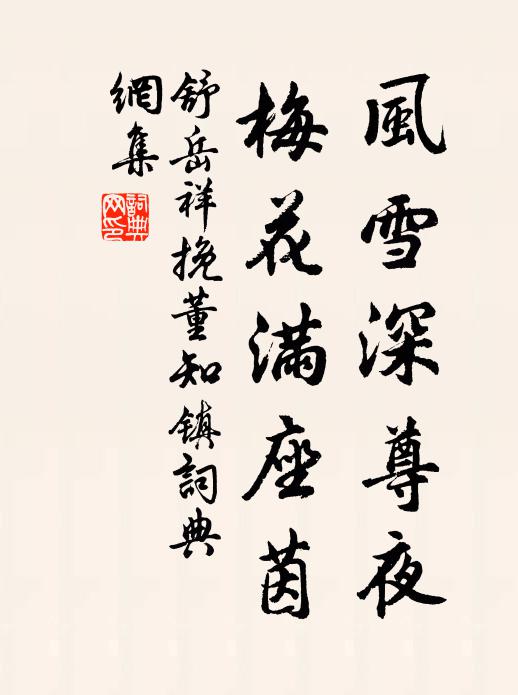 風雪深尊夜
梅花滿座茵
舒岳祥挽董知鎮詞典
網集
詞典
网印